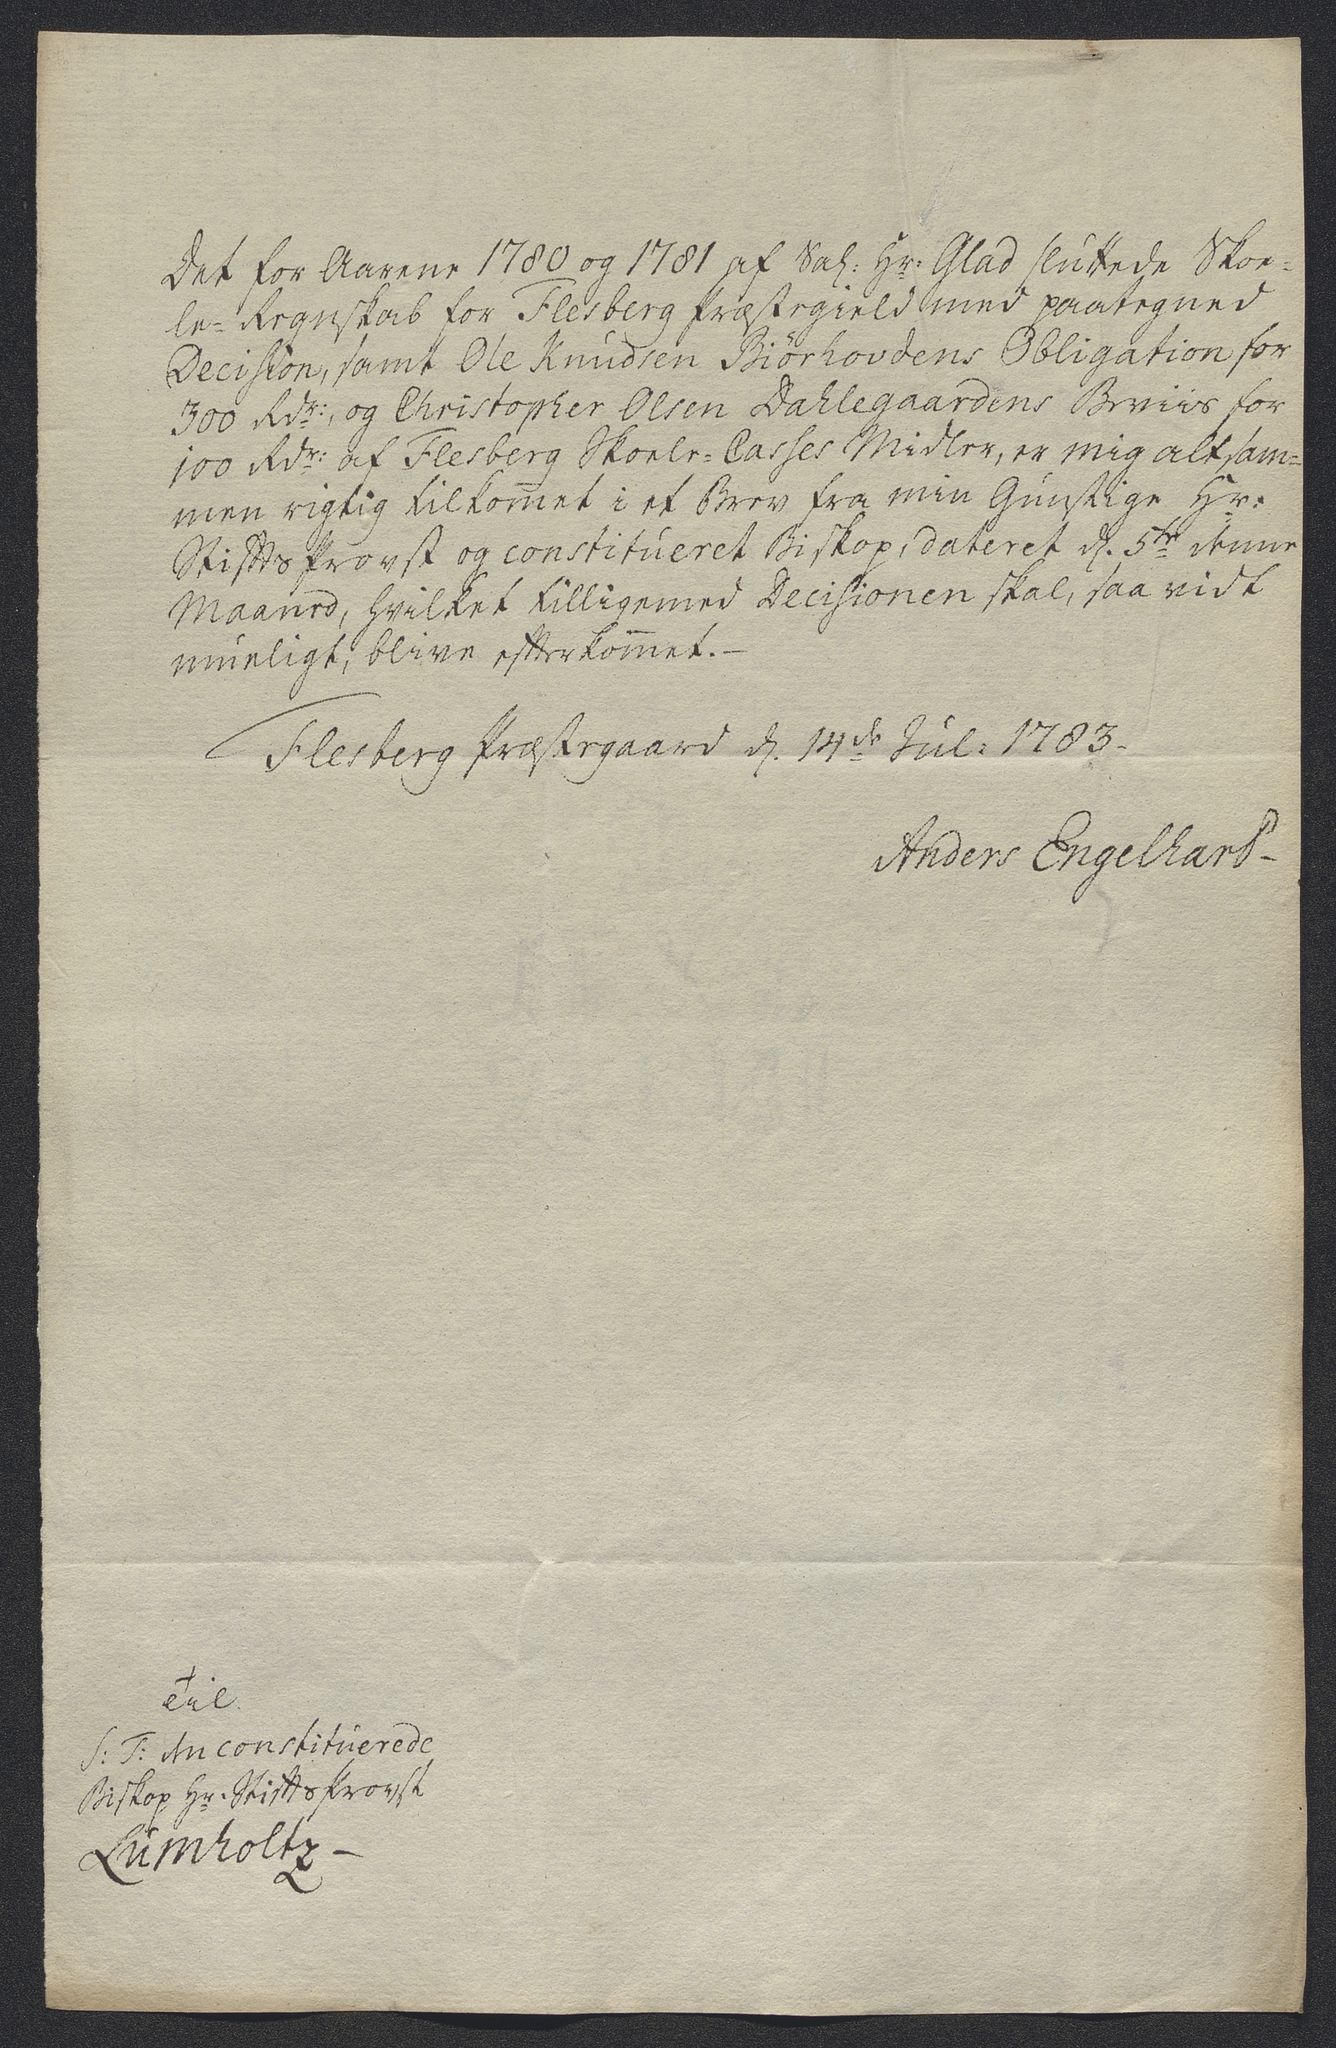 Det for Aarene 1780 og 1781 af Sal: Hr: Glad sluttede Skoe=
le= Regnskab for Flesberg Præstegield med paategned
Decision, samt Ole Knudsen Biörhovdens Obligation for
300 Rdr:, og Christopher Olsen Dahlegaardens Beviis for
100 Rdr: af Flesberg Skoele=Casses Midler, er mig alt sam=
men rigtig tilkom̅et i et Brev fra min Gunstige Hr:
StiftsProvst og constitueret Biskop, dateret d. 5te denne
Maaned, hvilket tilligemed Decisionen skal, saa vidt
mueligt, blive efterkom̅et.—
Flesberg Præstegaard d. 14de Jul: 1783.
Anders Engelhart
Til
S: T: den constituerede
Biskop Hr. StiftsProvst
Lumholtz—